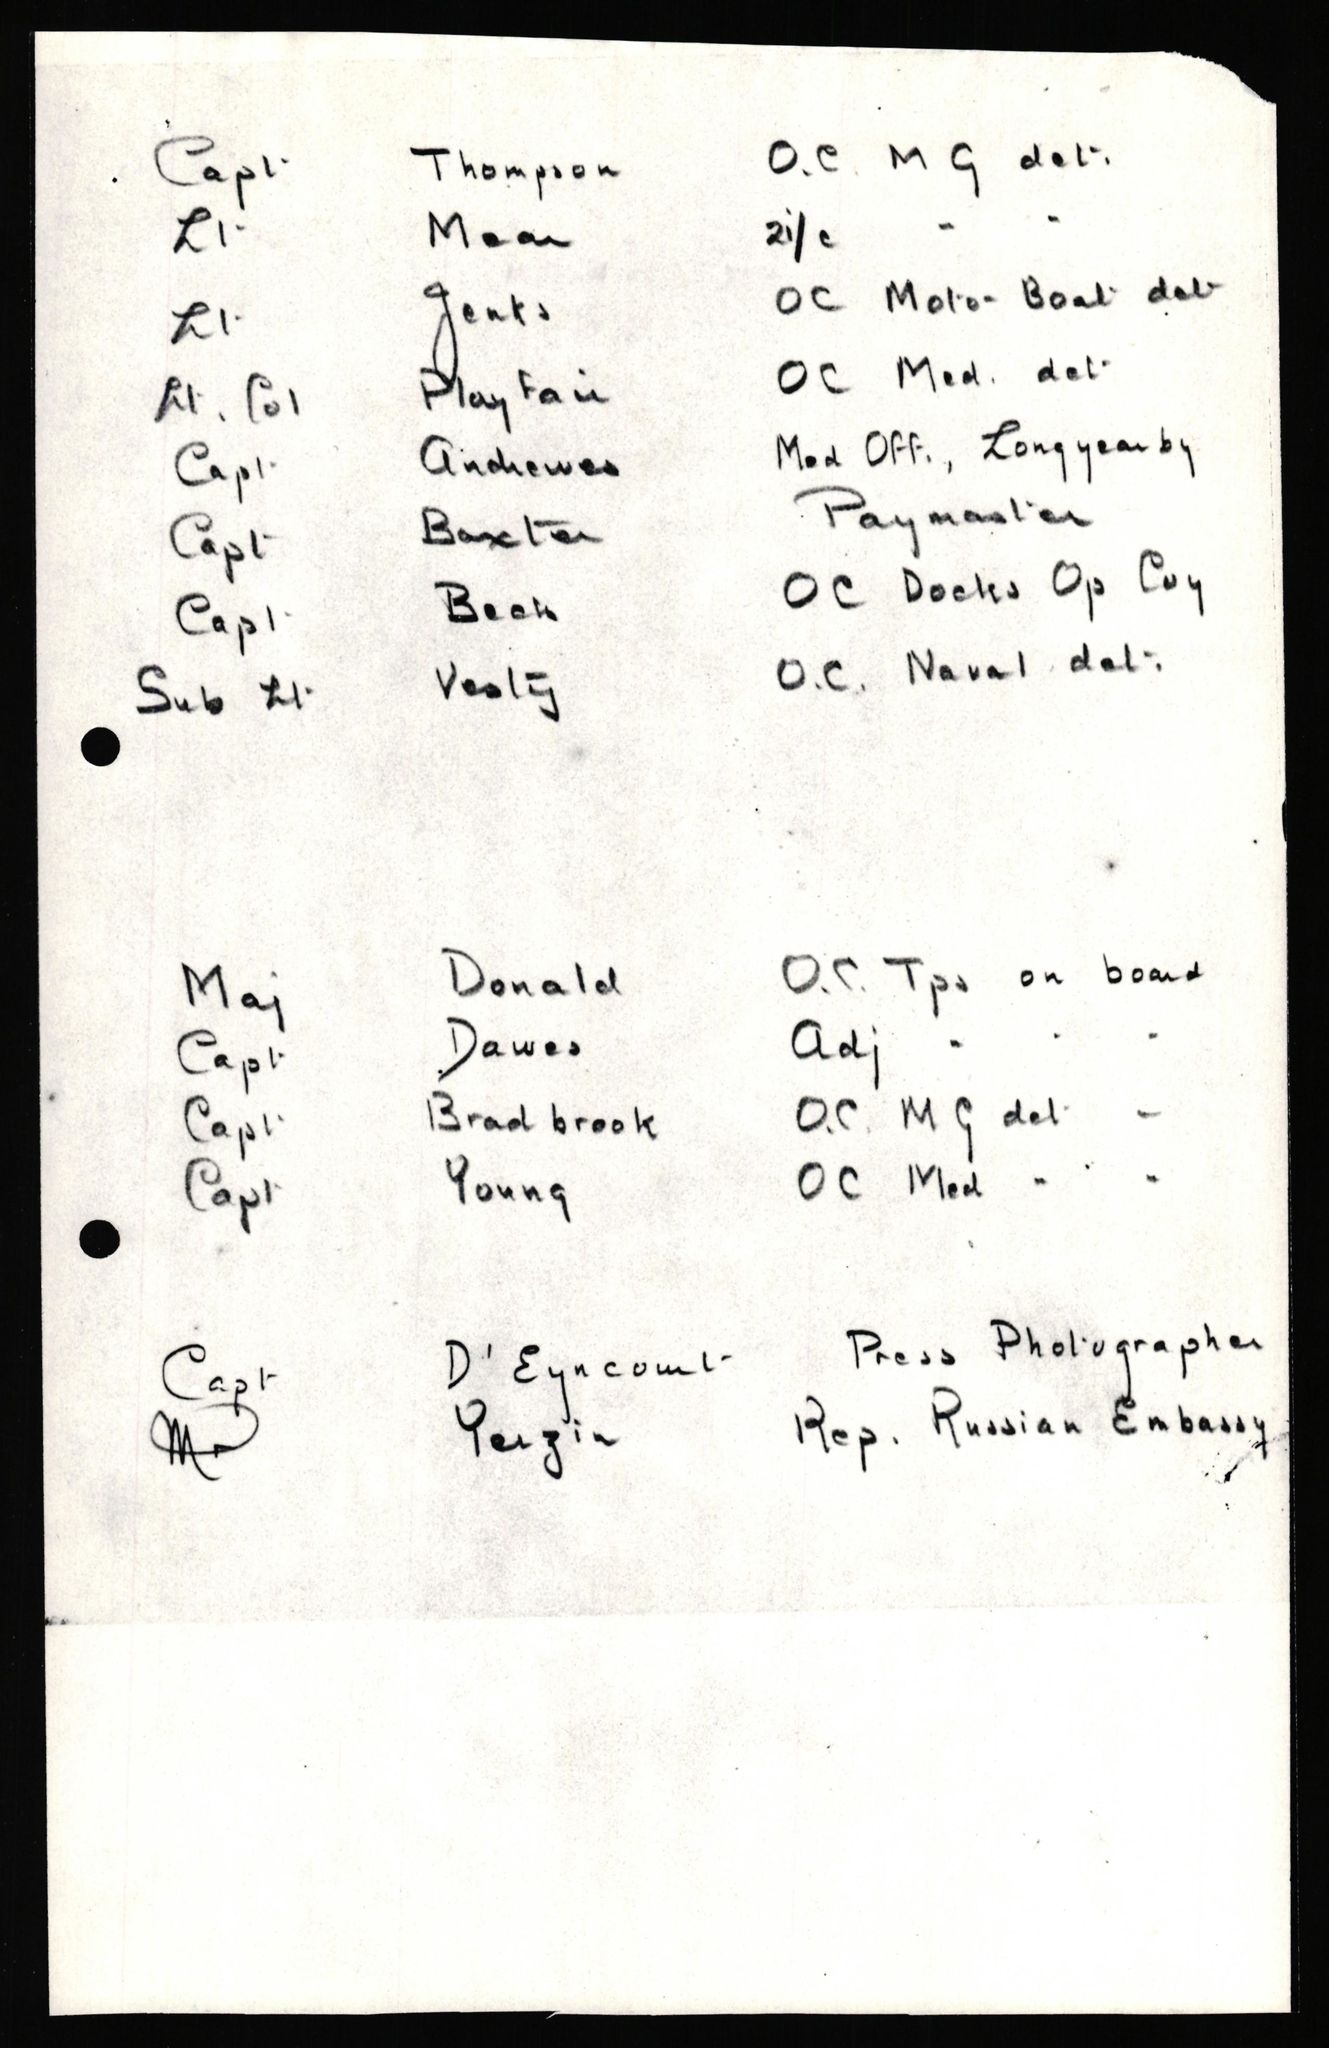 Capt Thompson O.C. M G det.
Lt 2i/c " "
Lt Jenks OC Motor Boat det
Lt. Col Playfair OC Med. det
Capt Andrewes Med Off., Longyearby
Capt Baxter Paymaster
Capt Beck OC Docks Op Coy
Sub Lt O.C. Naval det.
Maj Donald O.C. Tps on board
Capt Dawes Adj " " "
Capt Bradbrook O.C. M G det "
Capt Young OC Med " "
Capt D'Eyncourt Press Photographer
Mr Yerzin Rep. Russian Embassy